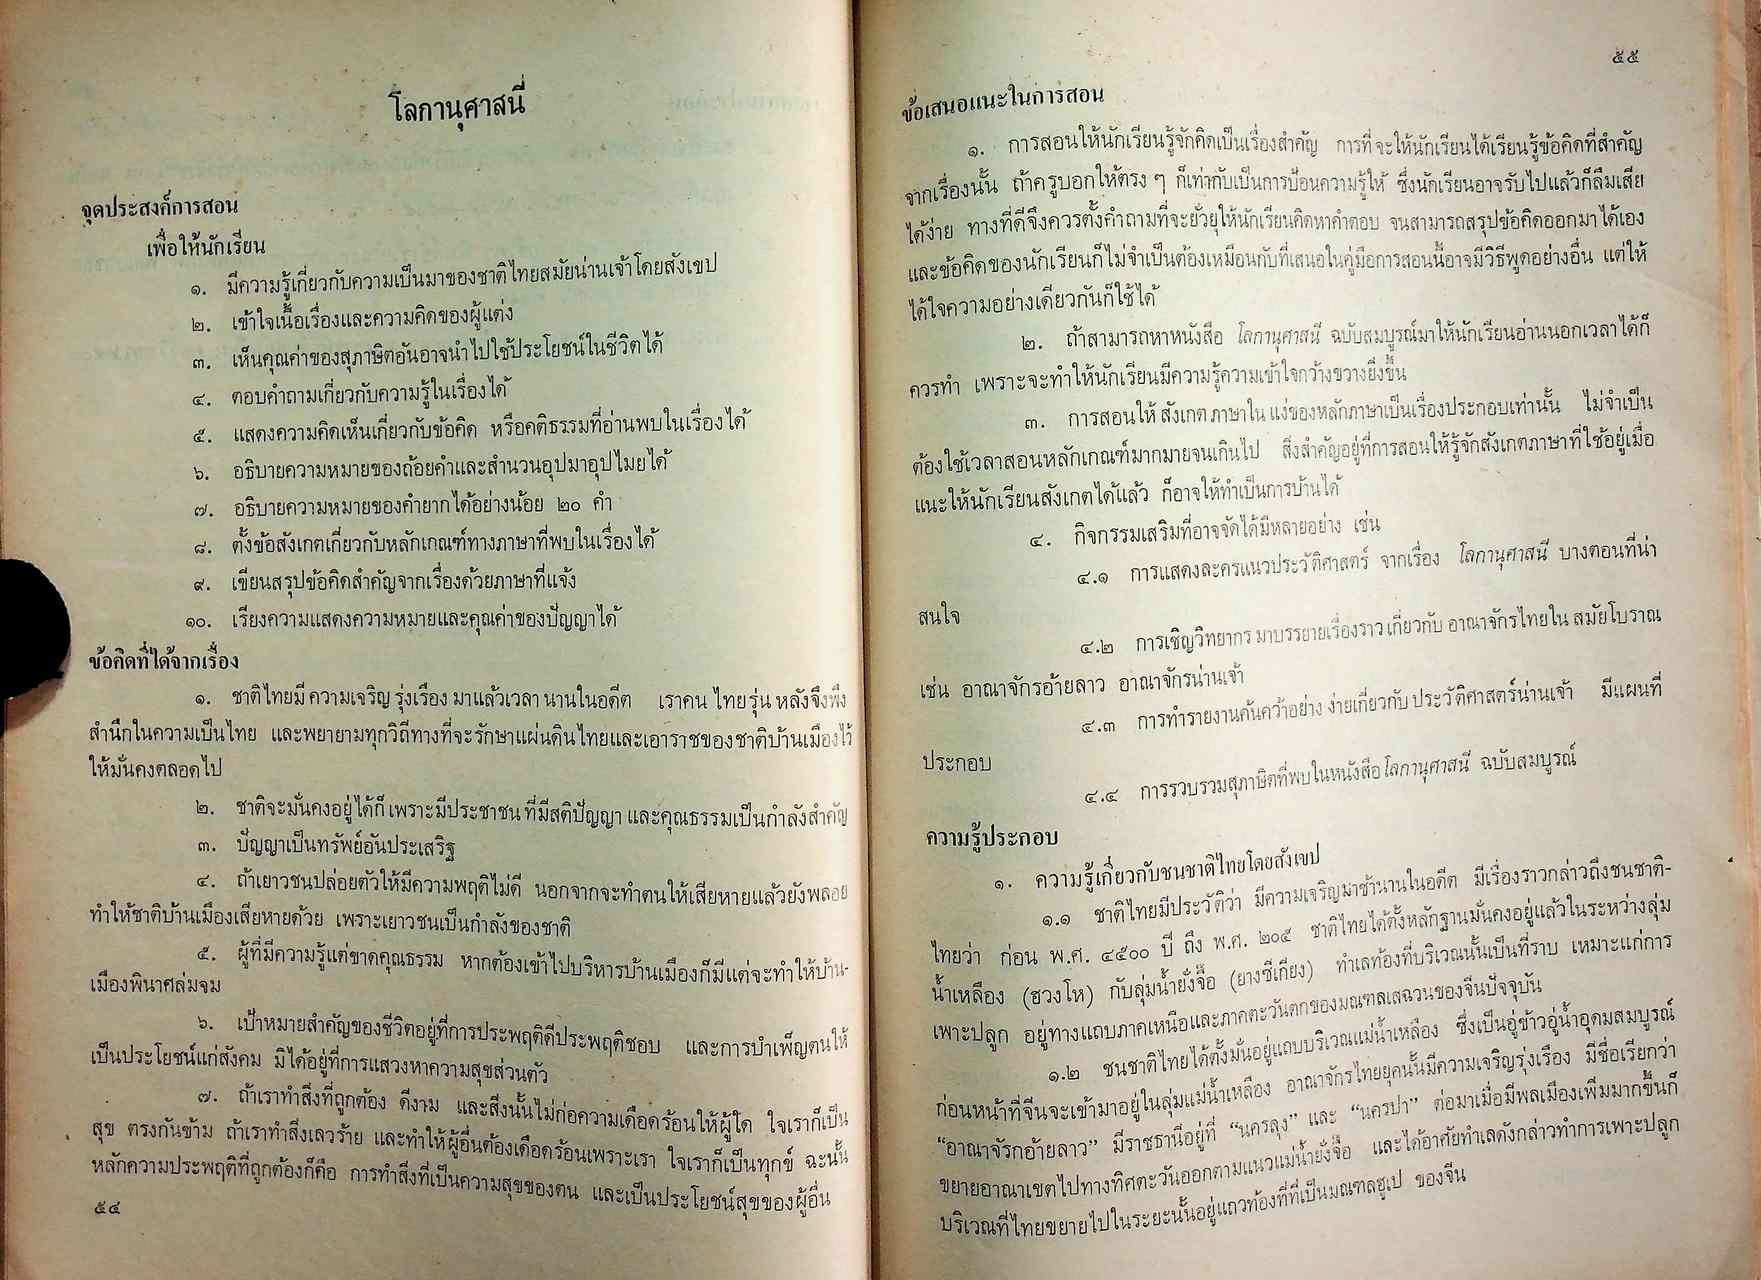 โลกานุศาสนี่
จุดประสงค์การสอน
เพื่อให้นักเรียน
๑. มีความรู้เกี่ยวกับความเป็นมาของชาติไทยสมัยน่านเจ้าโดยสังเขป
๒. เข้าใจเนื้อเรื่องและความคิดของผู้แต่ง
๓. เห็นคุณค่าของสุภาษิตอันอาจนำไปใช้ประโยชน์ในชีวิตได้
๔. ตอบคำถามเกี่ยวกับความรู้ในเรื่องได้
๕. แสดงความคิดเห็นเกี่ยวกับข้อคิด หรือคติธรรมที่อ่านพบในเรื่องได้
๖. อธิบายความหมายของถ้อยคำและสำนวนอุปมาอุปไมยได้
๗. อธิบายความหมายของคำยากได้อย่างน้อย ๒๐ คำ
๘. ตั้งข้อสังเกตเกี่ยวกับหลักเกณฑ์ทางภาษาที่พบในเรื่องได้
๙. เขียนสรุปข้อคิดสำคัญจากเรื่องด้วยภาษาที่แจ้ง
๑๐. เรียงความแสดงความหมายและคุณค่าของปัญญาได้
ข้อคิดที่ได้จากเรื่อง
๑. ชาติไทยมีความเจริญรุ่งเรืองมาแล้วเวลานานในอดีต เราคนไทยรุ่นหลังจึงพึง
สำนึกในความเป็นไทย และพยายามทุกวิถีทางที่จะรักษาแผ่นดินไทยและเอาราชของชาติบ้านเมืองไว้
ให้มั่นคงตลอดไป
๒. ชาติจะมั่นคงอยู่ได้ก็เพราะมีประชาชนที่มีสติปัญญาและคุณธรรมเป็นกำลังสำคัญ
๓. ปัญญาเป็นทรัพย์อันประเสริฐ
๔. ถ้าเยาวชนปล่อยตัวให้มีความพฤติไม่ดี นอกจากจะทำตนให้เสียหายแล้วยังพลอย
ทำให้ชาติบ้านเมืองเสียหายด้วย เพราะเยาวชนเป็นกำลังของชาติ
๕. ผู้ที่มีความรู้แต่ขาดคุณธรรม หากต้องเข้าไปบริหารบ้านเมืองก็มีแต่จะทำให้บ้าน-
เมืองพินาศล่มจม
๖. เป้าหมายสำคัญของชีวิตอยู่ที่การประพฤติดีประพฤติชอบ และการบำเพ็ญตนให้
เป็นประโยชน์แก่สังคม มิได้อยู่ที่การแสวงหาความสุขส่วนตัว
๗. ถ้าเราทำสิ่งที่ถูกต้อง ดีงาม และสิ่งนั้นไม่ก่อความเดือดร้อนให้ผู้ใด ใจเราก็เป็น
สุข ตรงกันข้าม ถ้าเราทำสิ่งเลวร้าย และทำให้ผู้อื่นต้องเดือดร้อนเพราะเรา ใจเราก็เป็นทุกข์ ฉะนั้น
หลักความประพฤติที่ถูกต้องก็คือ การทำสิ่งที่เป็นความสุขของตน และเป็นประโยชน์สุขของผู้อื่น
๕๔
๕๕
ข้อเสนอแนะในการสอน
๑. การสอนให้นักเรียนรู้จักคิดเป็นเรื่องสำคัญ การที่จะให้นักเรียนได้เรียนรู้ข้อคิดที่สำคัญ
จากเรื่องนั้น ถ้าครูบอกให้ตรง ๆ ก็เท่ากับเป็นการป้อนความรู้ให้ ซึ่งนักเรียนอาจรับไปแล้วก็ลืมเสีย
ได้ง่าย ทางที่ดีจึงควรตั้งคำถามที่จะยั่วยุให้นักเรียนคิดหาคำตอบ จนสามารถสรุปข้อคิดออกมาได้เอง
และข้อคิดของนักเรียนก็ไม่จำเป็นต้องเหมือนกับที่เสนอในคู่มือการสอนนี้อาจมีวิธีพูดอย่างอื่น แต่ให้
ได้ใจความอย่างเดียวกันก็ใช้ได้
๒. ถ้าสามารถหาหนังสือ โลกานุศาสนี ฉบับสมบูรณ์มาให้นักเรียนอ่านนอกเวลาได้ก็
ควรทำ เพราะจะทำให้นักเรียนมีความรู้ความเข้าใจกว้างขวางยิ่งขึ้น
๓. การสอนให้สังเกตภาษาในแง่ของหลักภาษาเป็นเรื่องประกอบเท่านั้น ไม่จำเป็น
ต้องใช้เวลาสอนหลักเกณฑ์มากมายจนเกินไป สิ่งสำคัญอยู่ที่การสอนให้รู้จักสังเกตภาษาที่ใช้อยู่เมื่อ
แนะให้นักเรียนสังเกตได้แล้ว ก็อาจให้ทำเป็นการบ้านได้
๔. กิจกรรมเสริมที่อาจจัดได้มีหลายอย่าง เช่น
๔.๑ การแสดงละครแนวประวัติศาสตร์ จากเรื่อง โลกานุศาสนี บางตอนที่น่า
สนใจ
๔.๒ การเชิญวิทยากรมาบรรยายเรื่องราวเกี่ยวกับอาณาจักรไทยในสมัยโบราณ
เช่น อาณาจักรอ้ายลาว อาณาจักรน่านเจ้า
๔.๓ การทำรายงานค้นคว้าอย่างง่ายเกี่ยวกับประวัติศาสตร์น่านเจ้า มีแผนที่
ประกอบ
๔.๔ การรวบรวมสุภาษิตที่พบในหนังสือโลกานุศาสนี ฉบับสมบูรณ์
ความรู้ประกอบ
๑. ความรู้เกี่ยวกับชนชาติไทยโดยสังเขป
๑.๑ ชาติไทยมีประวัติว่า มีความเจริญมาช้านานในอดีต มีเรื่องราวกล่าวถึงชนชาติ-
ไทยว่า ก่อน พ.ศ. ๔๕๐๐ ปี ถึง พ.ศ. ๒๐๕ ชาติไทยได้ตั้งหลักฐานมั่นคงอยู่แล้วในระหว่างลุ่ม
น้ำเหลือง (ฮวงโห) กับลุ่มน้ำยั่งจื๊อ (ยางซีเกียง) ทำเลท้องที่บริเวณนั้นเป็นที่ราบ เหมาะแก่การ
เพาะปลูก อยู่ทางแถบภาคเหนือและภาคตะวันตกของมณฑลเสฉวนของจีนปัจจุบัน
๑.๒ ชนชาติไทยได้ตั้งมั่นอยู่แถบบริเวณแม่น้ำเหลือง ซึ่งเป็นอู่ข้าวอู่น้ำอุดมสมบูรณ์
ก่อนหน้าที่จีนจะเข้ามาอยู่ในลุ่มแม่น้ำเหลือง อาณาจักรไทยยุคนั้นมีความเจริญรุ่งเรือง มีชื่อเรียกว่า
“อาณาจักรอ้ายลาว” มีราชธานีอยู่ที่ “นครลุง” และ “นครปา” ต่อมาเมื่อมีพลเมืองเพิ่มมากขึ้นก็
ขยายอาณาเขตไปทางทิศตะวันออกตามแนวแม่น้ำยั่งจื๊อ และได้อาศัยทำเลดังกล่าวทำการเพาะปลูก
บริเวณที่ไทยขยายไปในระยะนั้นอยู่แถวท้องที่ที่เป็นมณฑลฮูเป ของจีน